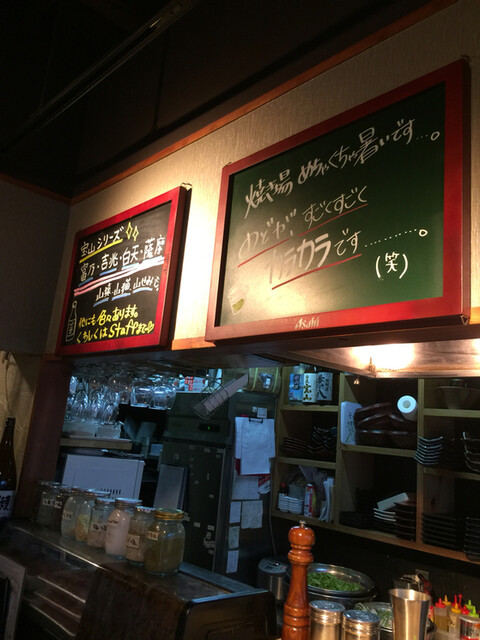 宝山シリーズ
富乃・吉兆・白天・薩摩
山猿・山猫・山せみ
他にも色々あります。
くわしくはStaffまで
焼き場 めちゃくちゃ暑いです…。
のどが、すごくすごく
カラカラです………。
(笑)
Asahi